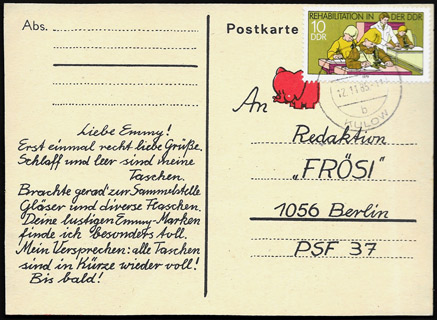 Abs.
Postkarte
REHABILITATION IN DER DDR
10
DDR
12.11.85
b
KULOW
An
Redaktion
„FRÖSI“
1056 Berlin
PSF 37
Liebe Emmy!
Erst einmal recht liebe Grüße.
Schlaff und leer sind meine
Taschen.
Brachte gerad zur Sammelstelle
Gläser und diverse Flaschen.
Deine lustigen Emmy-Marken
finde ich besonders toll.
Mein Versprechen: alle Taschen
sind in Kürze wieder voll!
Bis bald!